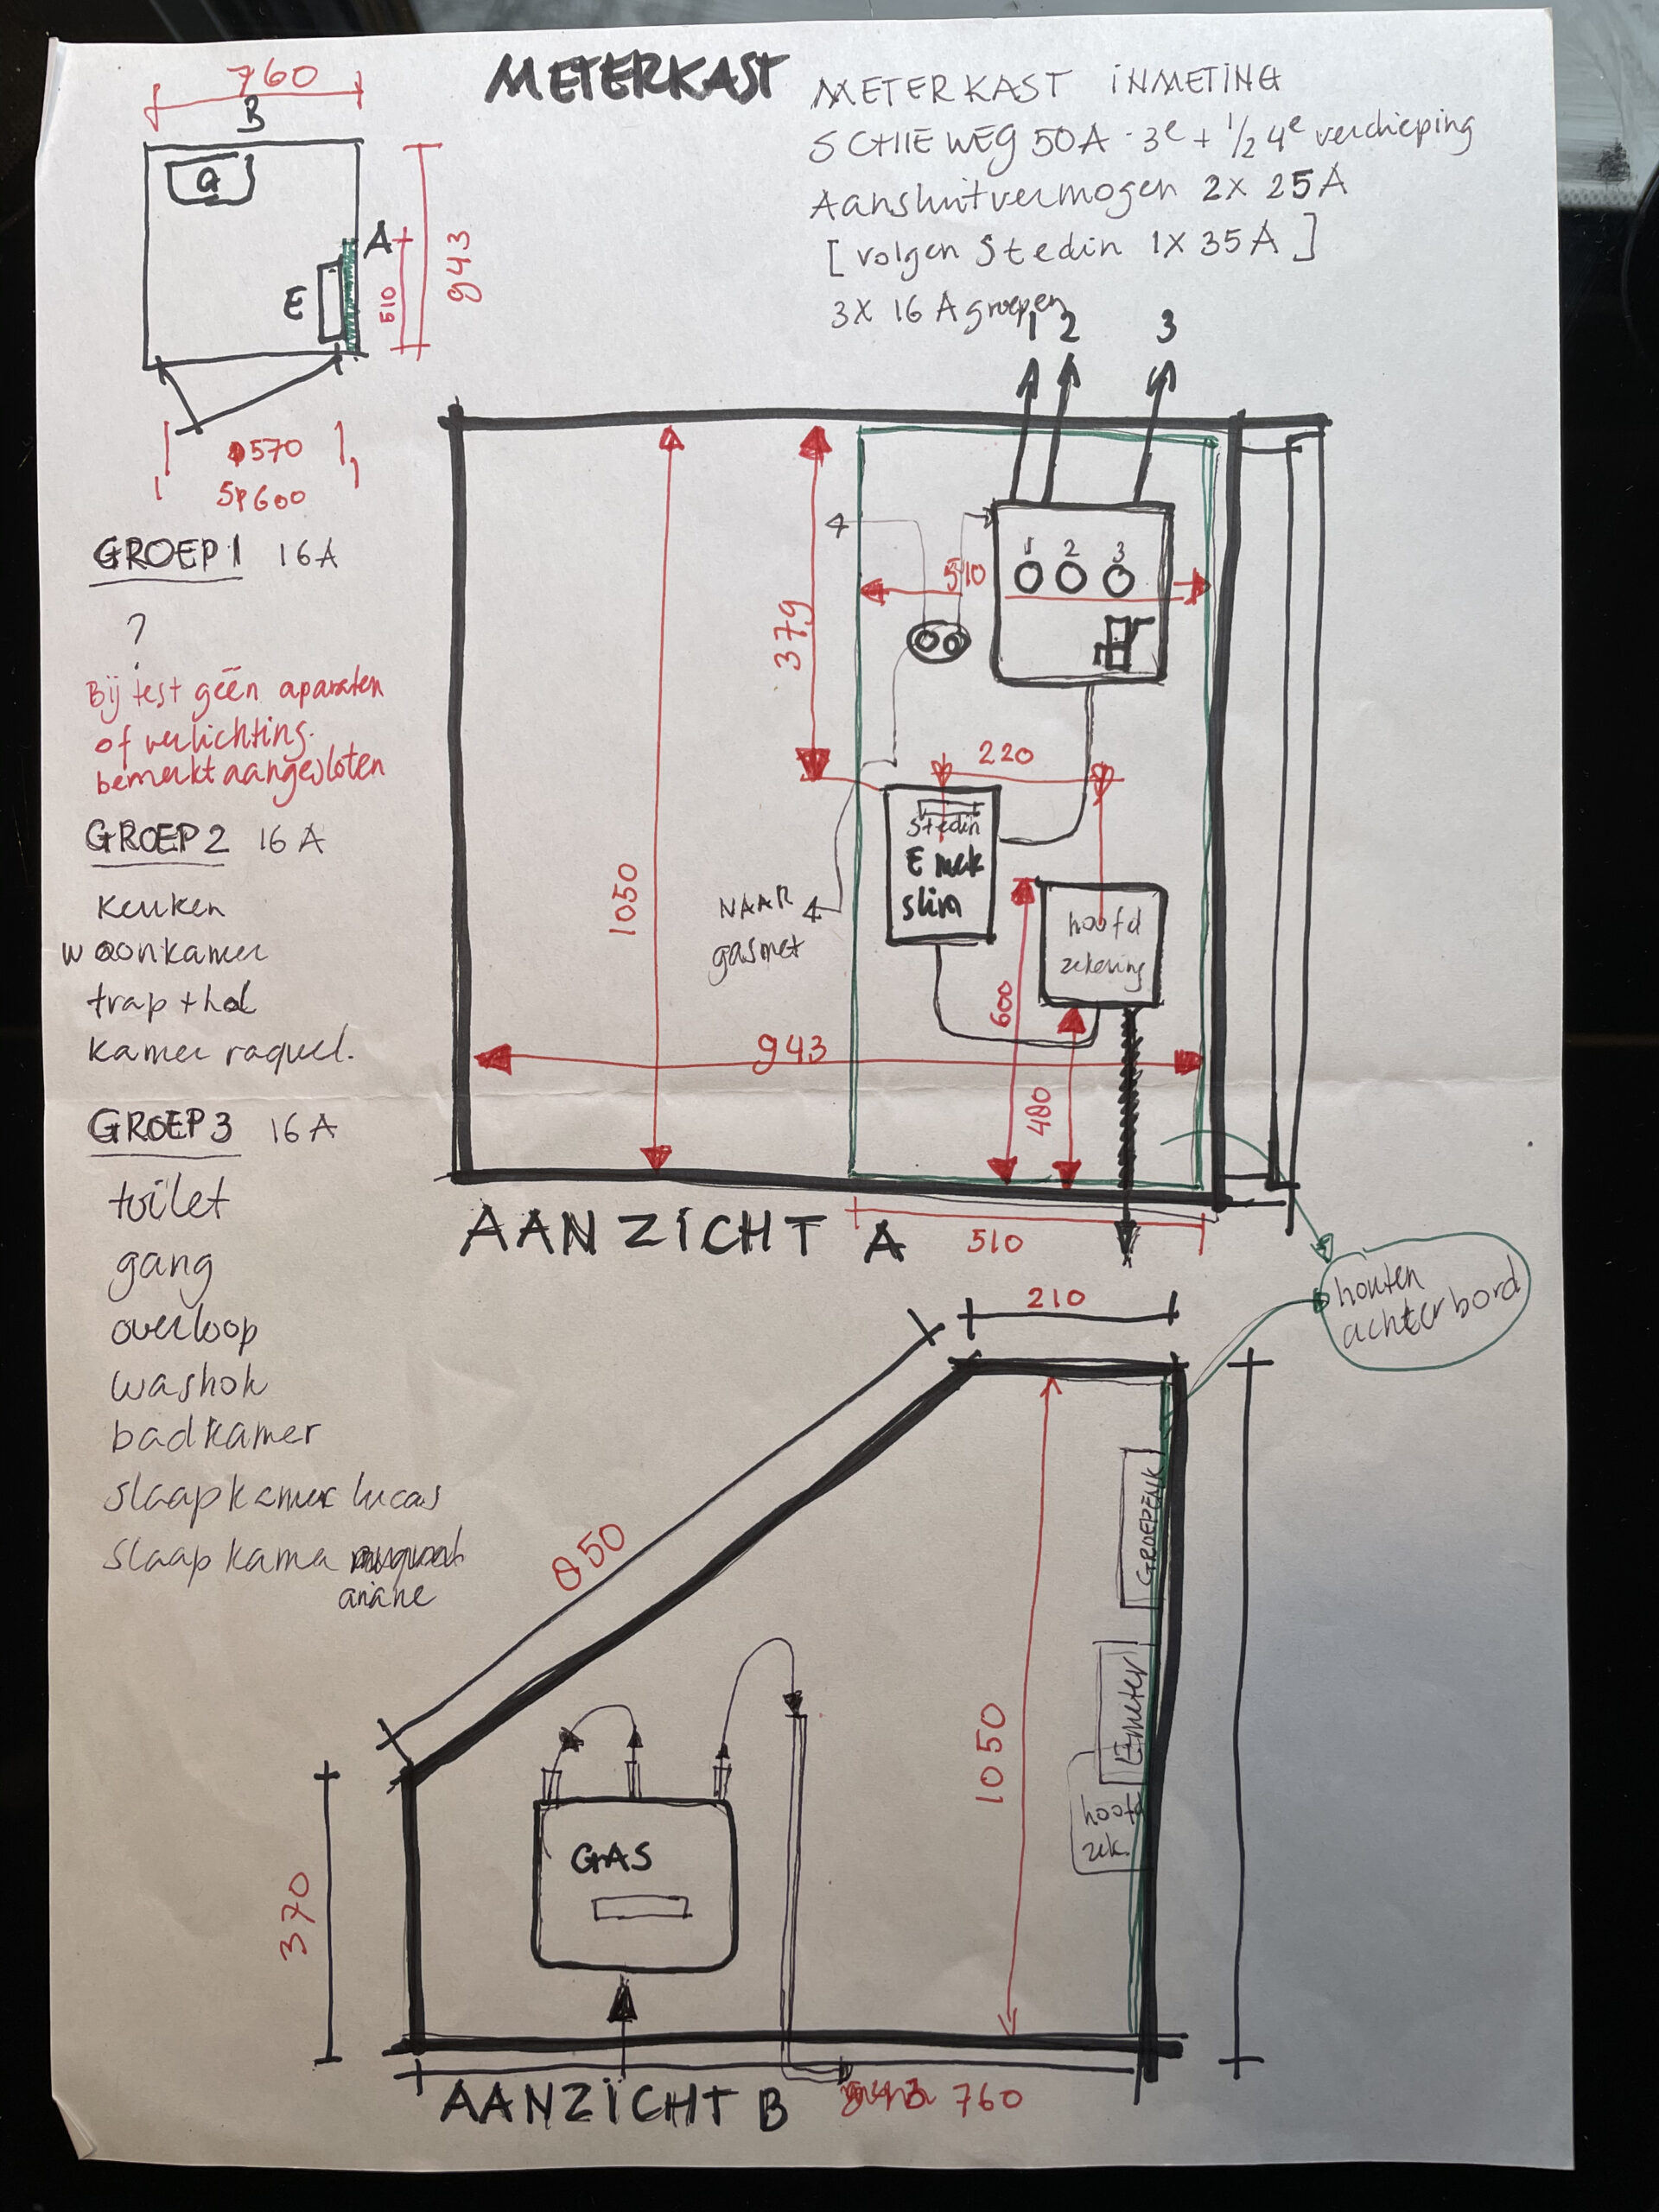 METERKAST
METERKAST INMETING
SCHIEWEG 50A - 3e + 1/2 4e verdieping
Aansluitvermogen 2X 25A
[volgen Stedin 1X 35A]
3X 16A groepen
760
B
G
A
E
510
943
570
600
GROEP 1 16A
?
Bij test géén aparaten
of verlichting.
bemerkt aangesloten
GROEP 2 16A
keuken
woonkamer
trap + hal
kamer raquel.
GROEP 3 16A
toilet
gang
overloop
washok
badkamer
slaapkamer lucas
slaapkamer
ariane
1 2 3
1 2 3
510
379
220
1050
Stedin
E mek
slim
NAAR
gasmet
hoofd
zekering
600
480
943
AANZICHT A
510
houten
achterbord
210
850
GROEPENK
Emeter
hoofd
zek.
1050
GAS
370
AANZICHT B
760